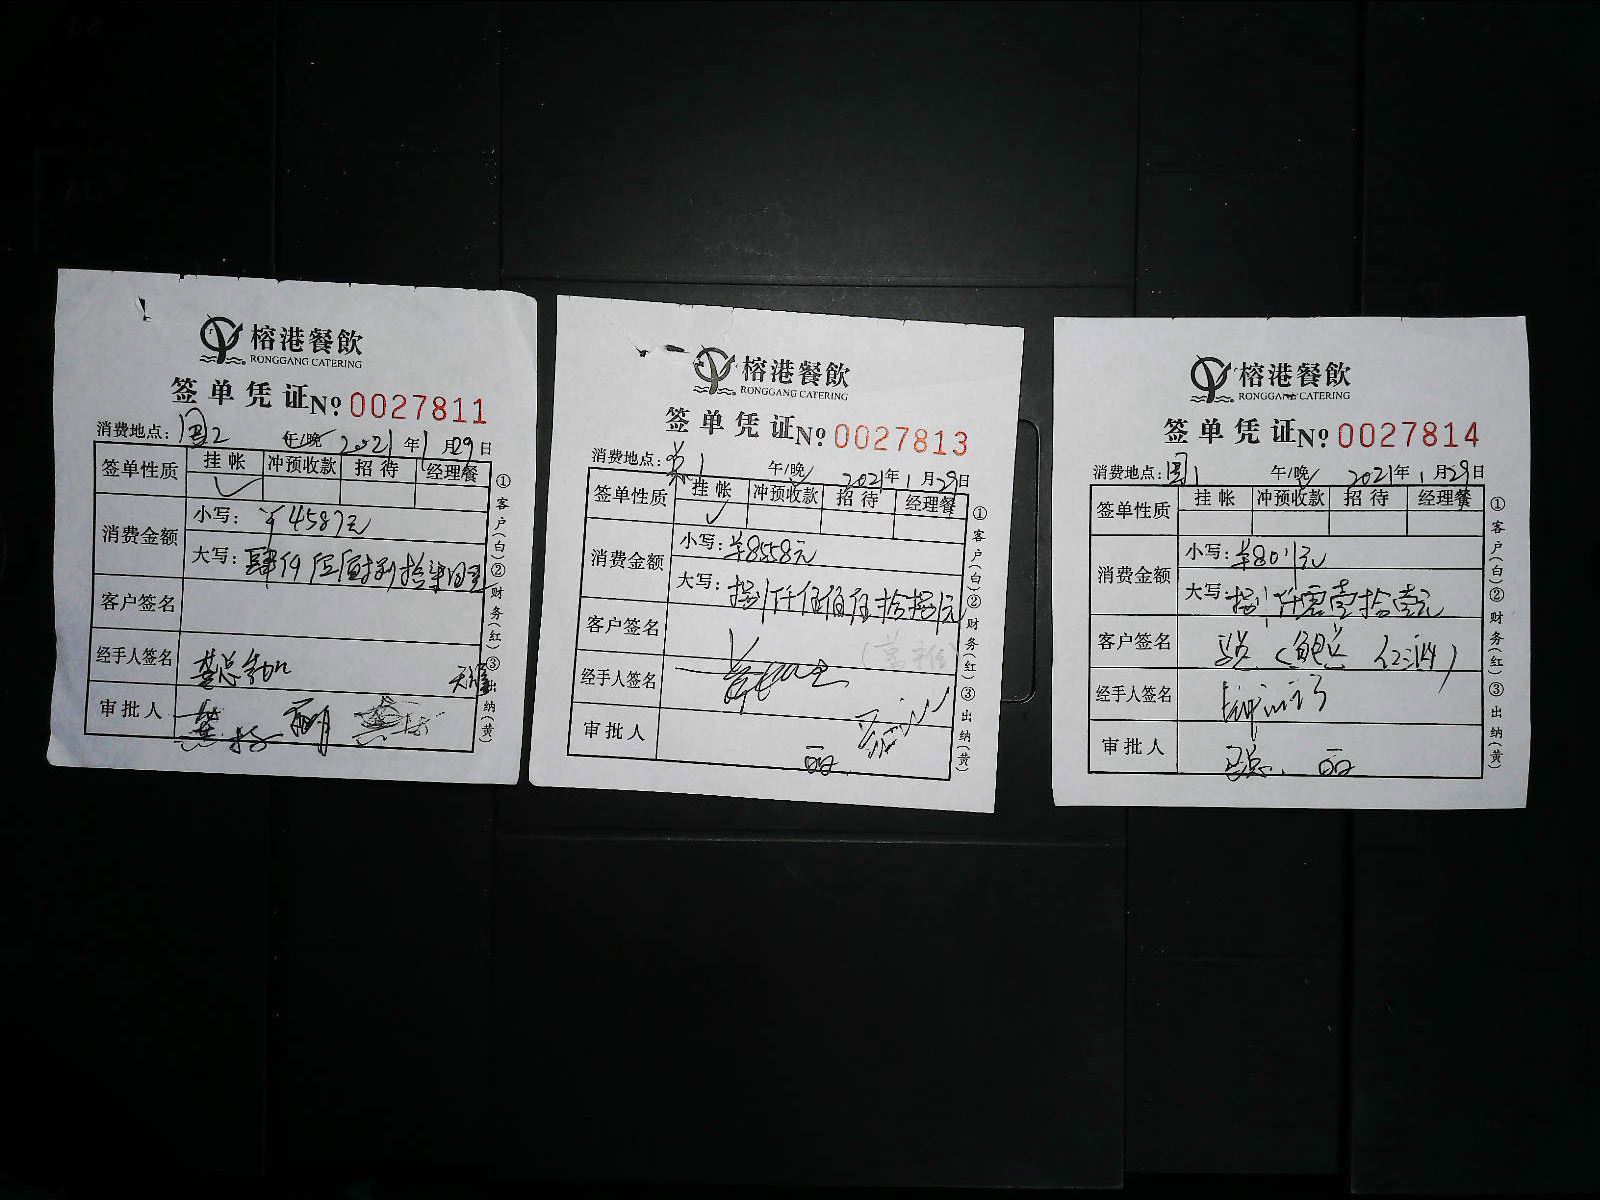 榕港餐飲
RONGGANG CATERING
签单凭证 №0027811
消费地点: 2 午/晚 2021年1月29日
签单性质 挂帐 冲预收款 招待 经理餐
消费金额 小写: ¥4587元
大写: 肆仟伍佰捌拾柒元
客户签名
经手人签名
审批人
①客户(白)②财务(红)③出纳(黄)
榕港餐飲
RONGGANG CATERING
签单凭证 №0027813
消费地点: 1 午/晚 2021年1月29日
签单性质 挂帐 冲预收款 招待 经理餐
消费金额 小写: ¥8558元
大写: 捌仟伍佰伍拾捌元
客户签名
经手人签名
审批人
①客户(白)②财务(红)③出纳(黄)
榕港餐飲
RONGGANG CATERING
签单凭证 №0027814
消费地点: 1 午/晚 2021年1月29日
签单性质 挂帐 冲预收款 招待 经理餐
消费金额 小写: ¥8011元
大写: 捌仟零壹拾壹元
客户签名
经手人签名
审批人
①客户(白)②财务(红)③出纳(黄)